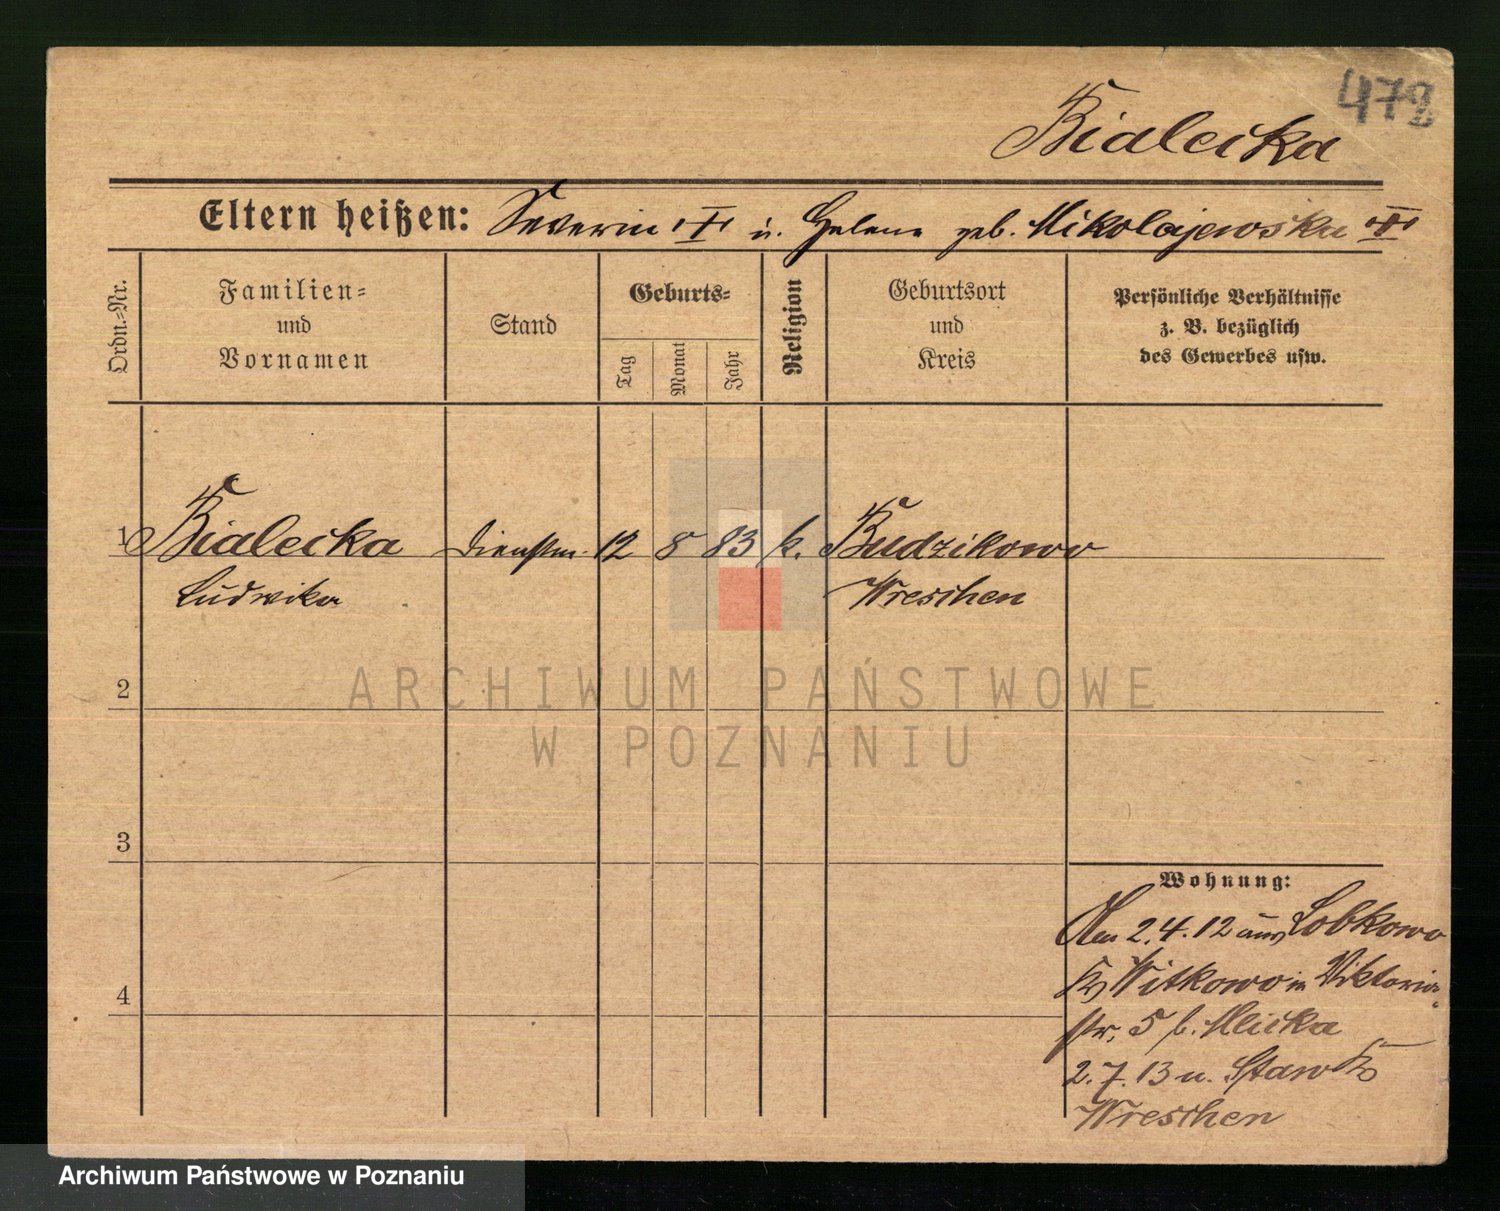 472
Bialecka
Eltern heißen: Severin "†" u. Helene geb. Mikolajewska "†"
Ordn.-Nr.
Familien-
und
Vornamen
Stand
Geburts-
Tag
Monat
Jahr
Religion
Geburtsort
und
Kreis
Persönliche Verhältnisse
z. B. bezüglich
des Gewerbes usw.
1 Bialecka Dienstm. 12 8 83 k. Budzikowo
Ludwika Wreschen
2
3
4
Wohnung:
2.4.12 aus Lobkowo
Witkowo in Viktoria-
str. 5 b. Mlicka
2.7.13 n. Staw
Wreschen
ARCHIWUM PAŃSTWOWE
W POZNANIU
Archiwum Państwowe w Poznaniu